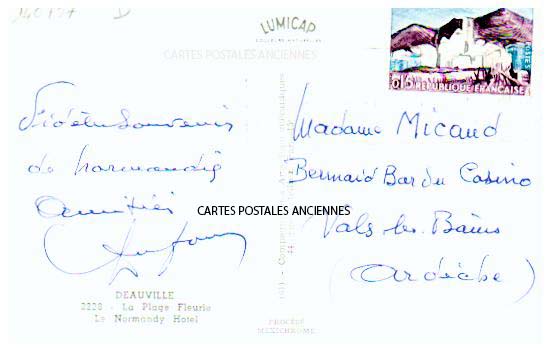 140757 D
LUMICAP
CARTES POSTALES ANCIENNES
0,15 RÉPUBLIQUE FRANÇAISE
POSTES
Fidèle Souvenir
de Normandie
Amitiés
Madame Micaud
Bernard Bar du Casino
Vals les Bains
(Ardèche)
CARTES POSTALES ANCIENNES
DEAUVILLE
2228 - La Plage Fleurie
Le Normandy Hotel
PROCÉDÉ
MEXICHROME